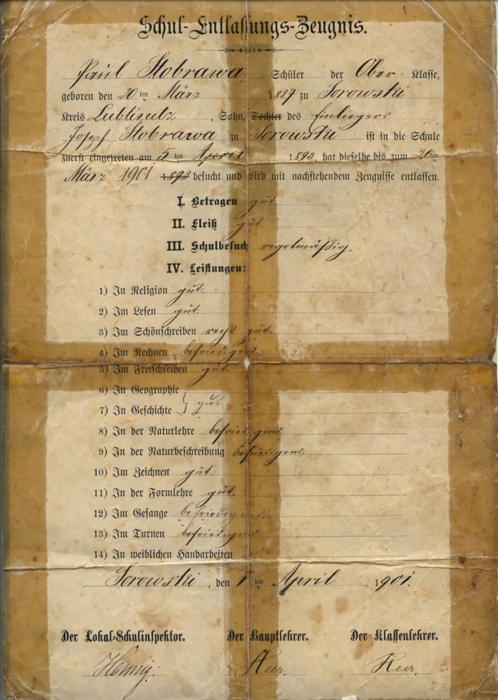 Schul-Entlassungs-Zeugnis.
Paul Stobrawa Schüler der Ober Klasse,
geboren den 20 ten März 1887 zu Sorowski
Kreis Lublinitz, Sohn, Tochter des Einliegers
Josef Stobrawa zu Sorowski ist in die Schule
zuerst eingetreten am 5 ten April 1893, hat dieselbe bis zum 20ten
März 1901 189 besucht und wird mit nachstehendem Zeugnisse entlassen.
I. Betragen gut.
II. Fleiß gut.
III. Schulbesuch regelmäßig.
IV. Leistungen:
1) In Religion gut.
2) Im Lesen gut.
3) Im Schönschreiben recht gut.
4) Im Rechnen befriedigend.
5) Im Freischreiben gut.
6) In Geographie
7) In Geschichte } gut.
8) In der Naturlehre befriedigend.
9) In der Naturbeschreibung befriedigend.
10) Im Zeichnen gut.
11) In der Formlehre gut.
12) Im Gesange befriedigend.
13) Im Turnen befriedigend.
14) In weiblichen Handarbeiten
Sorowski, den 1 ten April 1901.
Der Lokal-Schulinspektor. Der Hauptlehrer. Der Klassenlehrer.